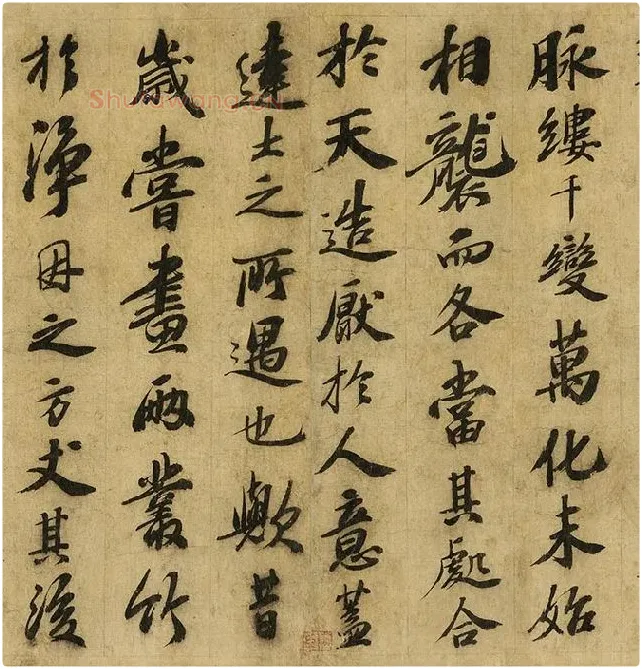 脉縷千變萬化未始
相襲而各當其處合
於天造厭於人意蓋
達士之所遇也歟昔
歲嘗畫兩叢竹
於淨因之方丈其後